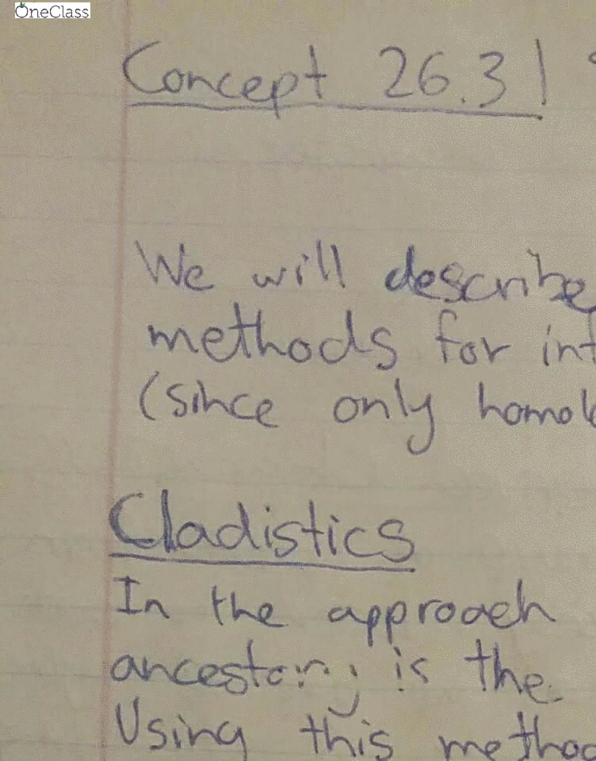 OneClass
Concept 26.3|
We will describe
methods for inf
(since only homol
Cladistics
In the approach
ancestory is the
Using this metho